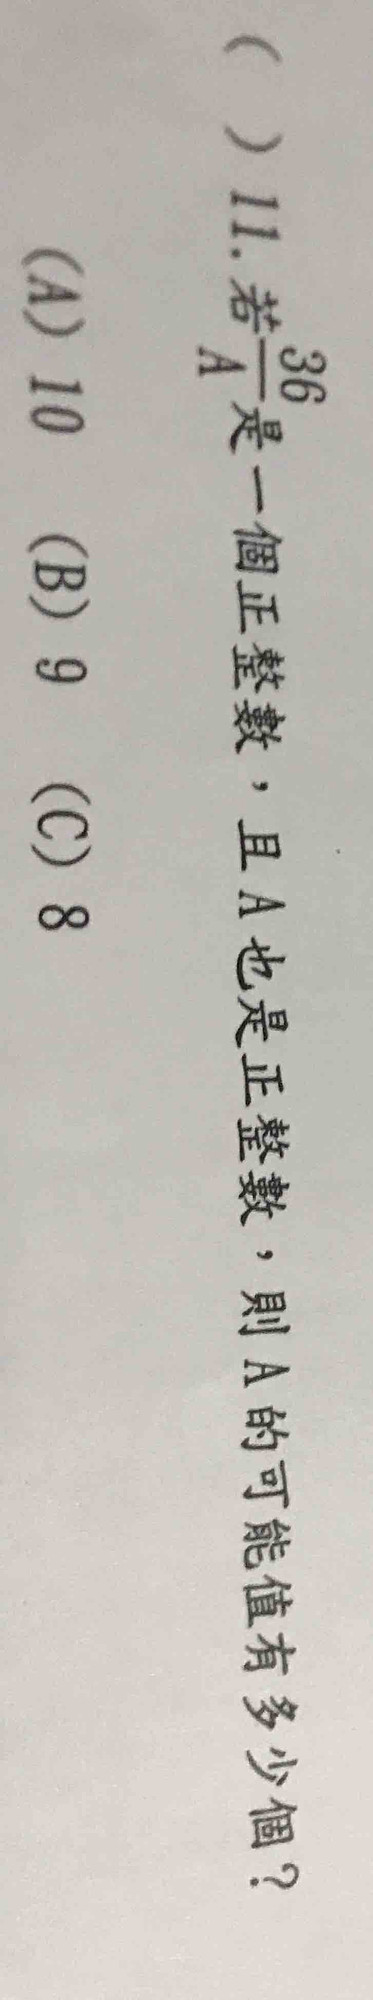 ( ) 11. 若36/A是一個正整數，且A也是正整數，則A的可能值有多少個？
(A) 10 (B) 9 (C) 8